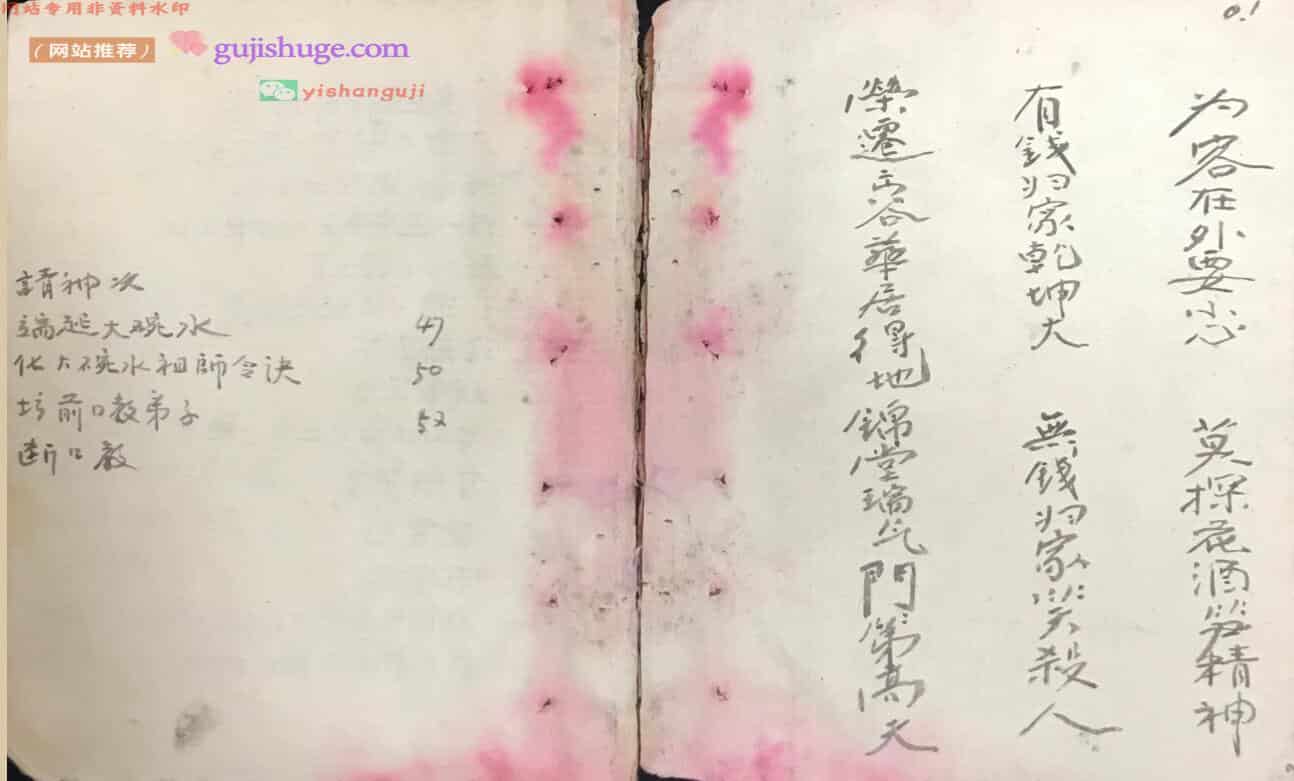 网站专用非资料水印
(网站推荐) gujishuge.com
yishanguji
0.1
为客在外要小心 莫探花酒管精神
有錢归家乾坤大 無錢归家笑殺人
榮遷高谷華居得地錦堂瑞气門第高天
請神次
端起大碗水 47
化大碗水祖師令诀 50
坛前口教弟子 52
断口教